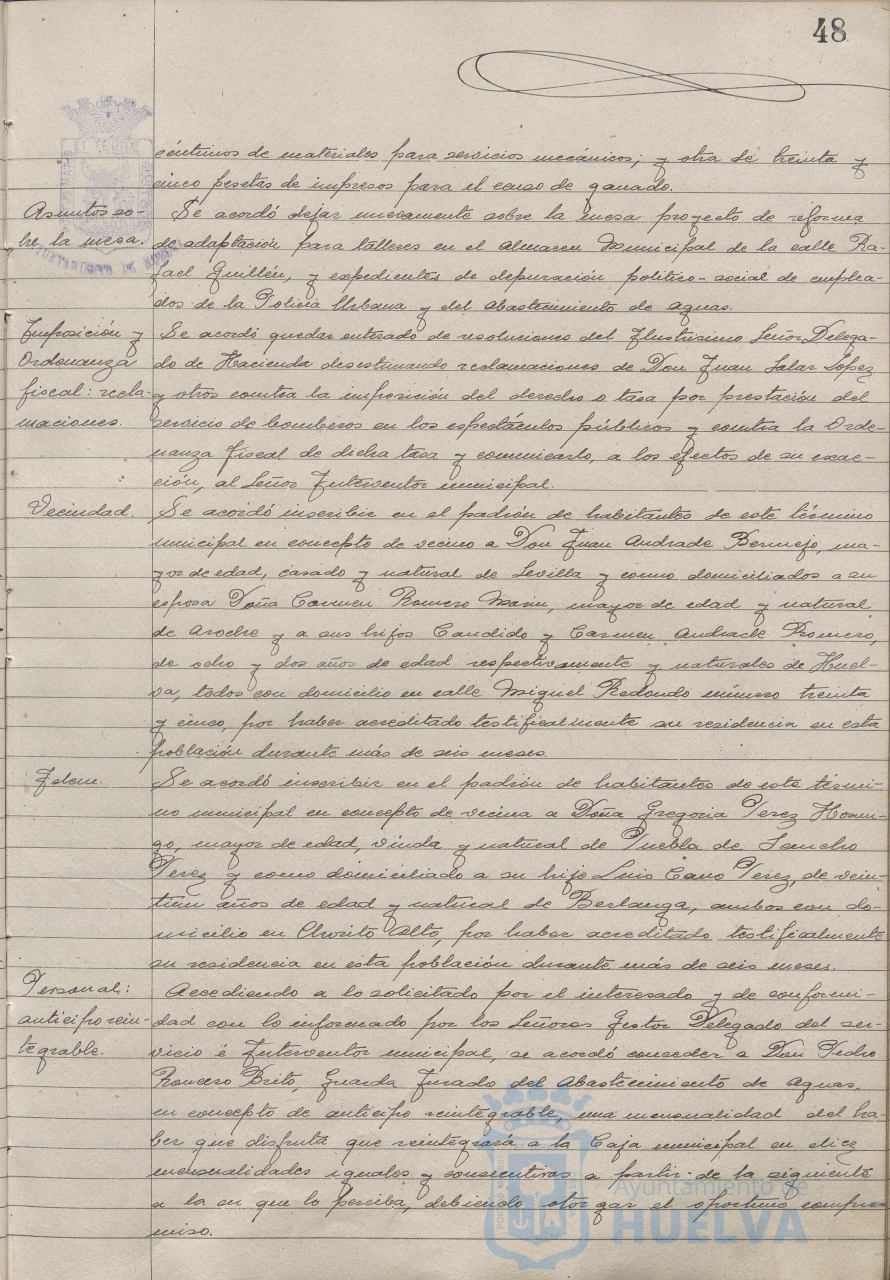 48
céntimos de materiales para servicios mecánicos; y otra de treinta y
cinco pesetas de impresos para el censo de ganado.
Asuntos so-
bre la mesa.
Se acordó dejar nuevamente sobre la mesa proyecto de reforma
de adaptación para talleres en el almacen Municipal de la calle Ra-
fael Guillén, y expedientes de depuración politico-social de emplea-
dos de la Policia Urbana y del Abastecimiento de Aguas.
Imposición y
Ordenanza
fiscal: recla-
maciones.
Se acordó quedar enterado de resoluciones del Ilustrisimo Señor Delega-
do de Hacienda desestimando reclamaciones de Don Juan Salar López
y otros contra la imposición del derecho o tasa por prestación del
servicio de bomberos en los espectáculos públicos y contra la Orde-
nanza fiscal de dicha tasa y comunicarlo, a los efectos de su exac-
ción, al Señor Interventor municipal.
Vecindad.
Se acordó inscribir en el padrón de habitantes de este término
municipal en concepto de vecino a Don Juan Andrade Bermejo, ma-
yor de edad, casado y natural de Sevilla y como domiciliados a su
esposa Doña Carmen Romero Marin, mayor de edad y natural
de Aroche y a sus hijos Candido y Carmen Andrade Romero,
de ocho y dos años de edad respectivamente y naturales de Huel-
va, todos con domicilio en calle Miguel Redondo número treinta
y cinco, por haber acreditado testificalmente su residencia en esta
población durante más de seis meses.
Idem.
Se acordó inscribir en el padrón de habitantes de este térmi-
no municipal en concepto de vecina a Doña Gregoria Perez Hormi-
go, mayor de edad, viuda y natural de Puebla de Sancho
Perez y como domiciliado a su hijo Luis Cano Perez, de vein-
tiún años de edad y natural de Berlanga, ambos con do-
micilio en Chorito Alto, por haber acreditado testificalmente
su residencia en esta población durante más de seis meses.
Personal:
anticipo rein-
tegrable.
Accediendo a lo solicitado por el interesado y de conformi-
dad con lo informado por los Señores Gestor Delegado del ser-
vicio é Interventor municipal, se acordó conceder a Don Pedro
Romero Brito, Guarda Jurado del Abastecimiento de Aguas,
en concepto de anticipo reintegrable, una mensualidad del ha-
ber que disfruta que reintegrará a la Caja municipal en diez
mensualidades iguales y consecutivas a partir de la siguiente
a la en que lo perciba, debiendo otorgar el oportuno compro-
miso.
Ayuntamiento de
HUELVA